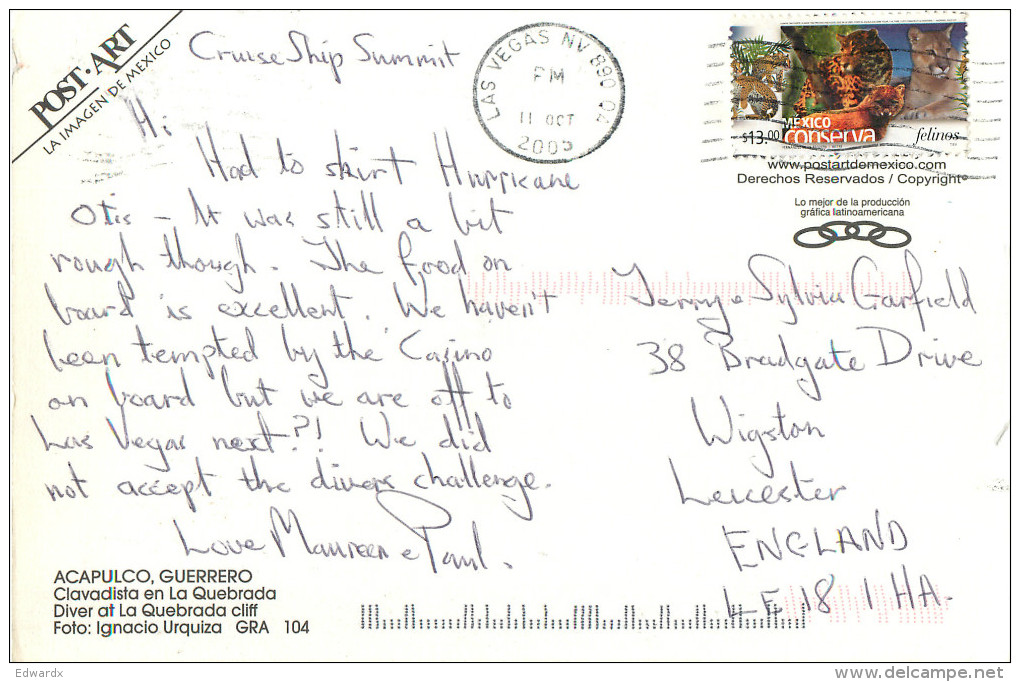 POST·ART
LA IMAGEN DE MEXICO
Cruise Ship Summit
LAS VEGAS NV 890 04
PM
11 OCT
2005
MEXICO
$13.00 conserva
felinos
www.postartdemexico.com
Derechos Reservados / Copyright©
Lo mejor de la producción
gráfica latinoamericana
Hi
Had to skirt Hurricane
Otis - It was still a bit
rough though. The food on
board is excellent. We haven't
been tempted by the Casino
on board but we are off to
Las Vegas next?! We did
not accept the divers challenge.
Love Maureen & Paul.
Terry & Sylvia Garfield
38 Bradgate Drive
Wigston
Leicester
ENGLAND
LE18 1HA.
ACAPULCO, GUERRERO
Clavadista en La Quebrada
Diver at La Quebrada cliff
Foto: Ignacio Urquiza GRA 104
Edwardx
delcampe.net